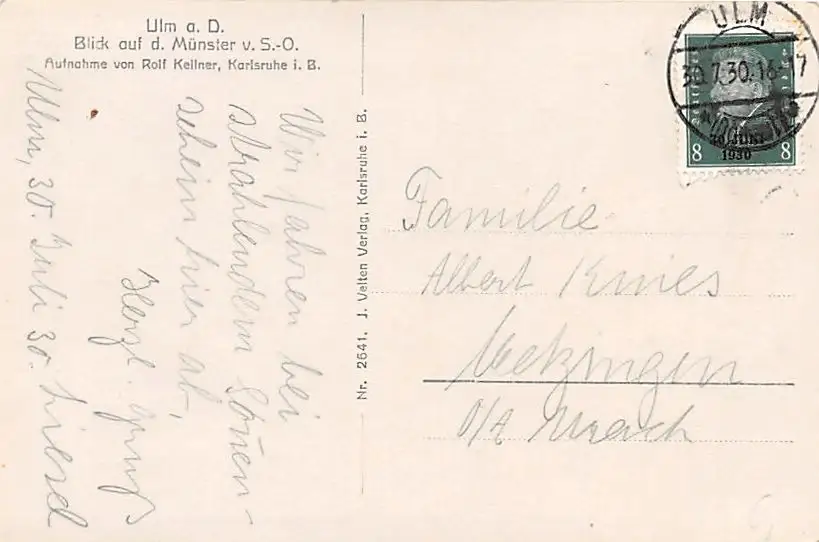 Ulm a. D.
Blick auf d. Münster v. S.-O.
Aufnahme von Rolf Kellner, Karlsruhe i. B.
Wir fahren bei
strahlendem Sonnen-
schein hier ab,
Herzl. Gruß
Ulm, 30. Juli 30. Liesel
Nr. 2641. J. Velten Verlag, Karlsruhe i. B.
ULM
30.7.30.16-17
30. JUNI
1930
8 8
Familie
Albert Knies
Metzingen
O/A Urach